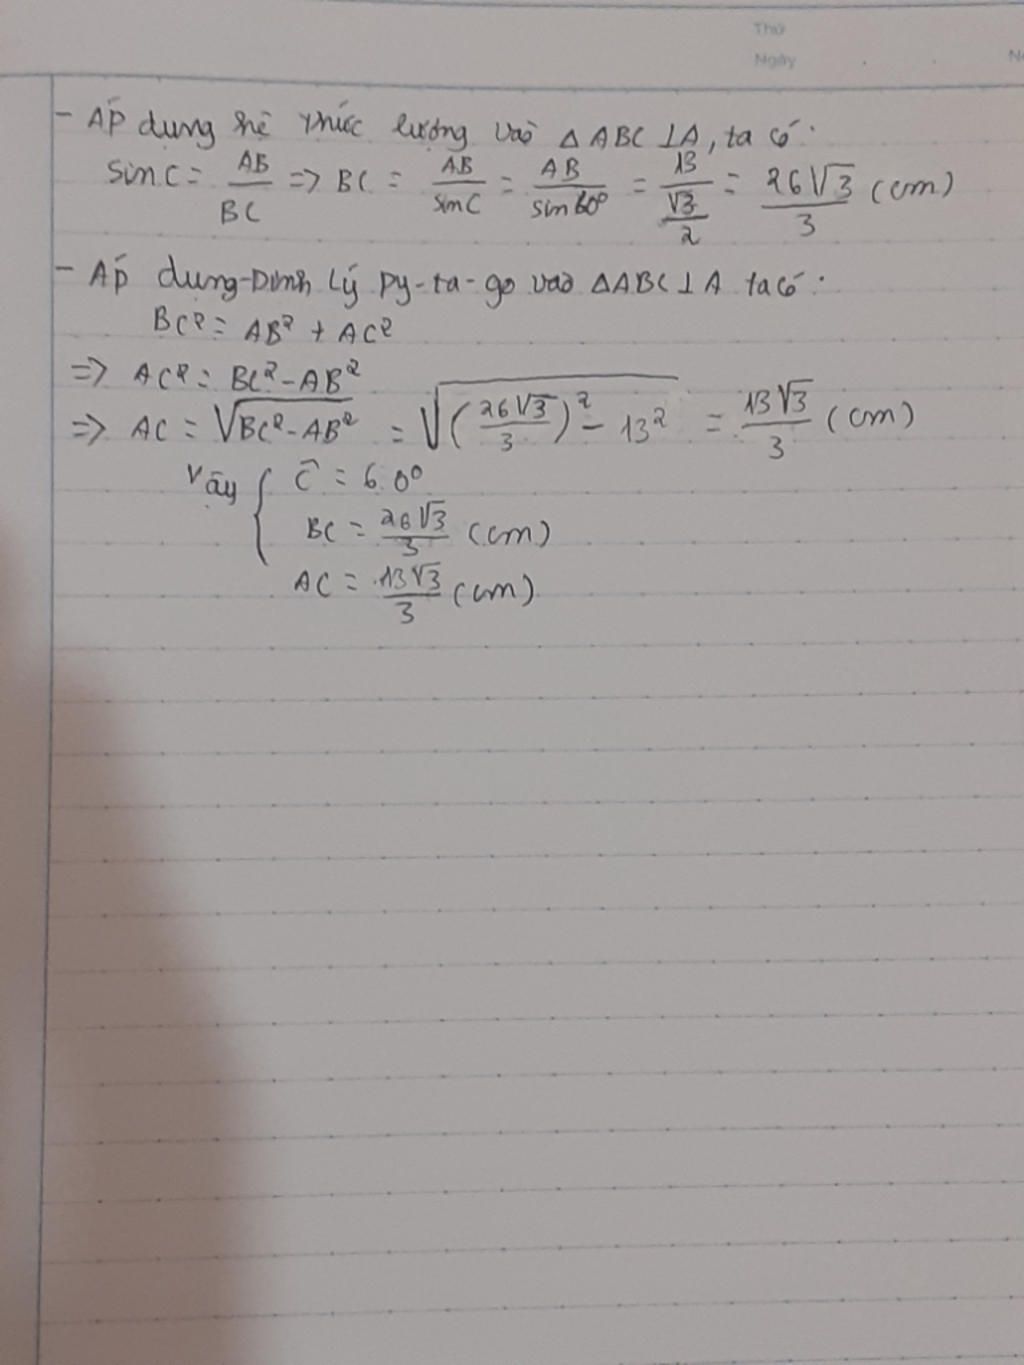 Thứ
Ngày
- Áp dụng hệ thức lượng vào △ABC ⊥ A, ta có:
sin C = AB/BC => BC = AB/sin C = AB/sin 60° = 13/(√3/2) = 26√3/3 (cm)
- Áp dụng Định lý Py-ta-go vào △ABC ⊥ A ta có:
BC² = AB² + AC²
=> AC² = BC² - AB²
=> AC = √(BC² - AB²) = √((26√3/3)² - 13²) = 13√3/3 (cm)
Vậy { Ĉ = 60°
BC = 26√3/3 (cm)
AC = 13√3/3 (cm)